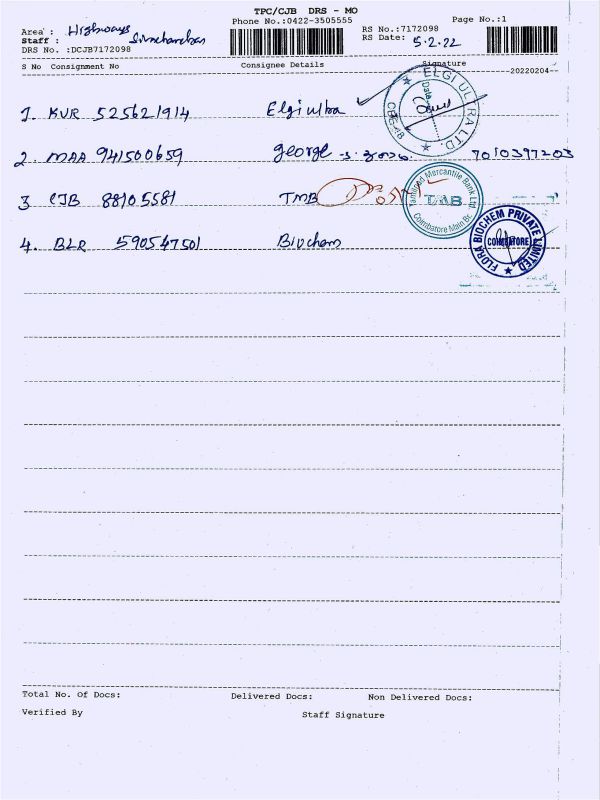 TPC/CJB DRS - MO
Phone No.:0422-3505555
Page No.:1
Area : Highways
Staff :
DRS No. :DCJB7172098
RS No.:7172098
RS Date: 5.2.22
S No Consignment No Consignee Details Signature
20220204
1. KVR 525621914 Elgi ultra
ELGI ULTRA LTD.
Date
2. MAA 941500659 George 7010397203
3 CJB 88105581 TMB
Tamilnad Mercantile Bank Ltd
TMB
Coimbatore Main Br.
4. BLR 590547501 Biochem
FLORA BIOCHEM PRIVATE LIMITED
COIMBATORE
Total No. Of Docs: Delivered Docs: Non Delivered Docs:
Verified By Staff Signature